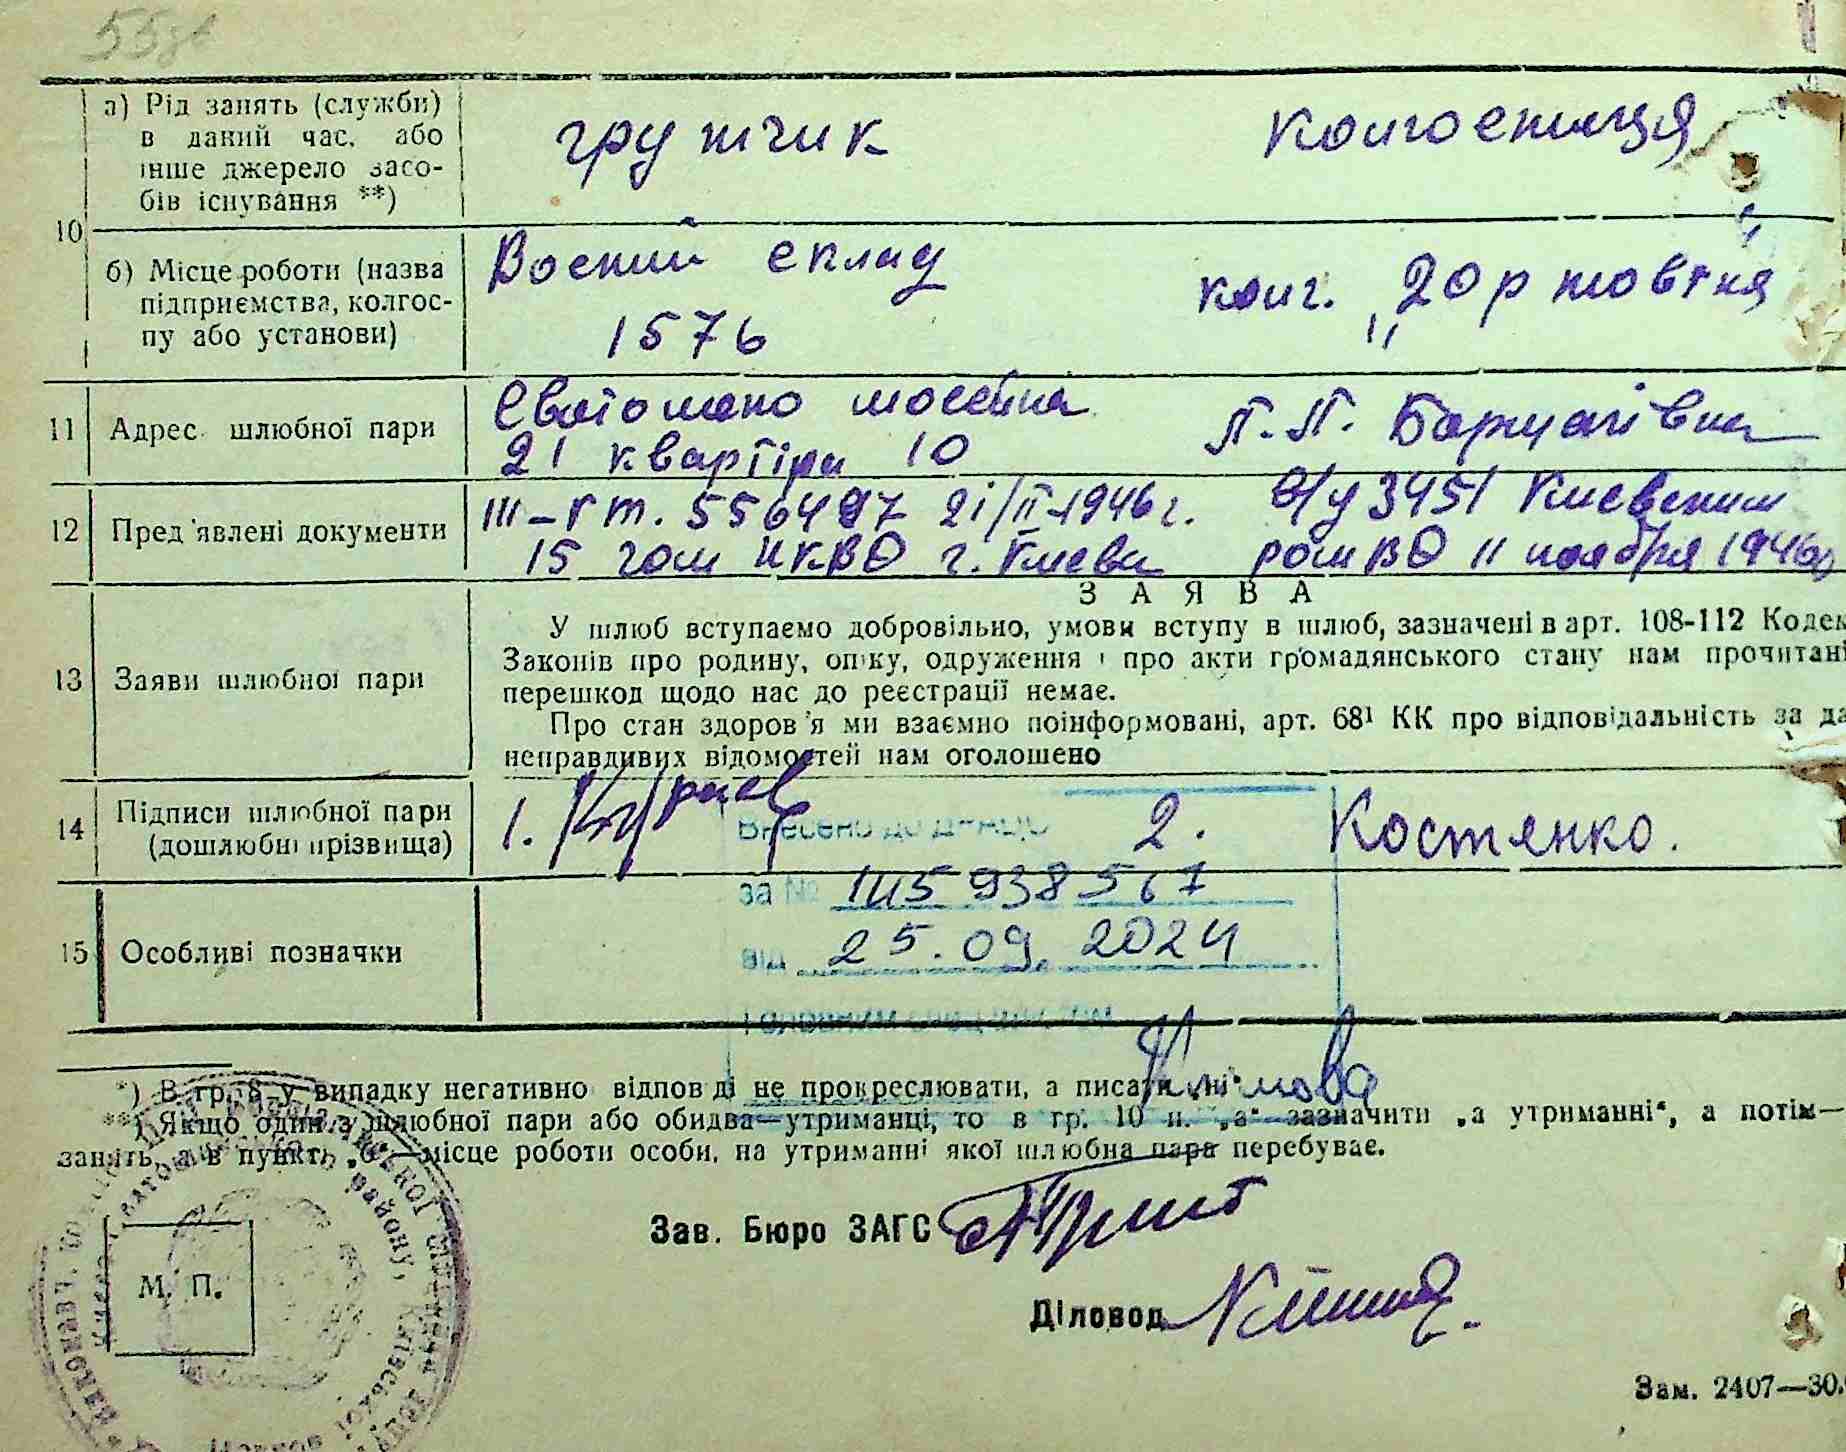 а) Рід занять (служби)
в даний час, або
інше джерело засо-
бів існування **)
грутчик
колгоспниця
10
б) Місце роботи (назва
підприємства, колгос-
пу або установи)
Воений склад
1576
колг. „20 р жовтня"
11
Адрес шлюбної пари
Святошино
21 квартіра 10
П.П. Борщагівка
12
Пред'явлені документи
21/II-1946 г.
15 гом НКВД г. Киева
3451 Киевским
11 ноября 1946
З А Я В А
13
Заяви шлюбної пари
У шлюб вступаємо добровільно, умови вступу в шлюб, зазначені в арт. 108-112 Кодек
Законів про родину, опіку, одруження і про акти громадянського стану нам прочитані
перешкод щодо нас до реєстрації немає.
Про стан здоров'я ми взаємно поінформовані, арт. 68¹ КК про відповідальність за да
неправдивих відомостей нам оголошено
14
Підписи шлюбної пари
(дошлюбні прізвища)
1.
2. Костянко.
Внесено до ДРАЦС
за № 145938567
від 25.09.2024
15
Особливі позначки
Головним спеціалістом
*) В гр. 8 у випадку негативно відповіді не прокреслювати, а писати „ні"
**) Якщо один з шлюбної пари або обидва—утриманці, то в гр. 10 п. „а" зазначити „а утриманні", а потім—
занять, а в пункті „б"—місце роботи особи, на утриманні якої шлюбна пара перебуває.
Зав. Бюро ЗАГС
М. П.
Діловод
Зам. 2407—30.